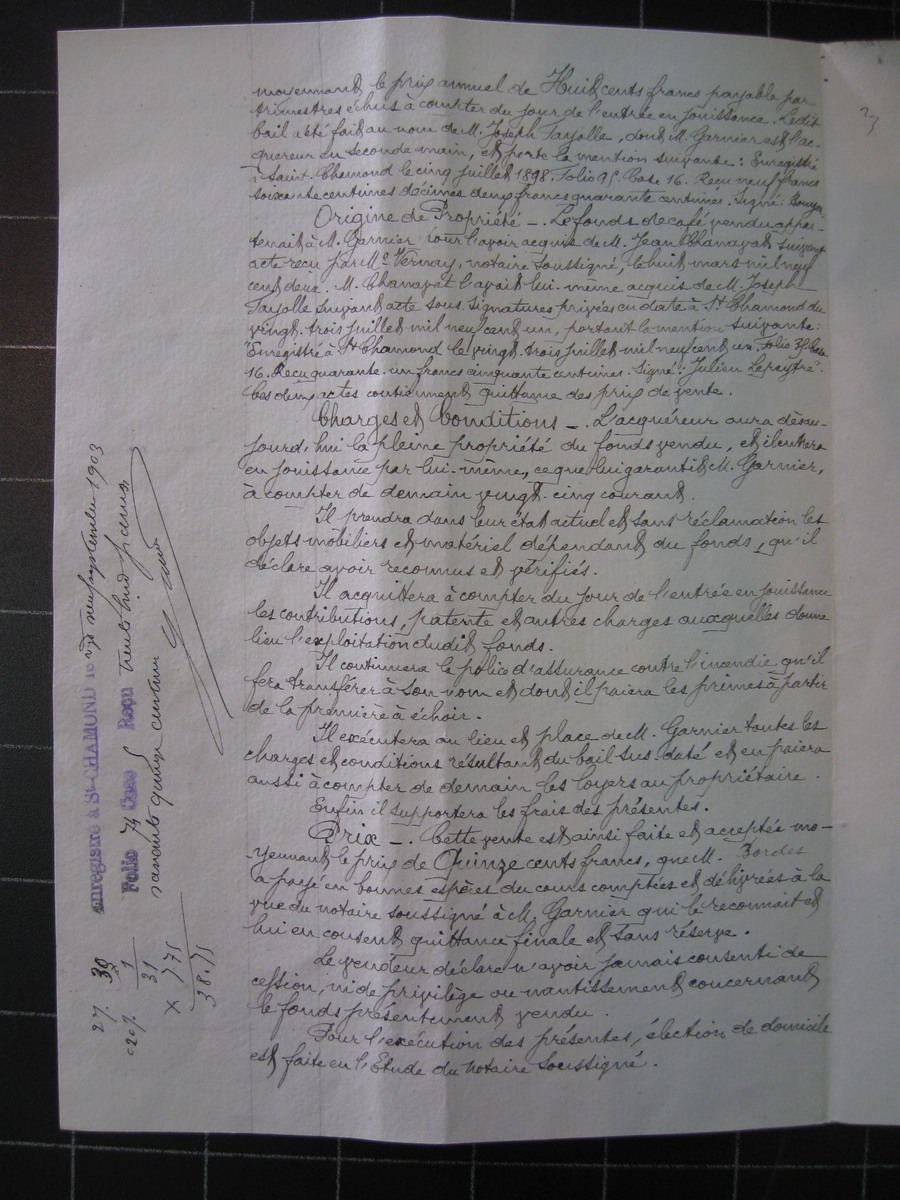 moyennant le prix annuel de Huit cents francs payable par
trimestres échus à compter du jour de l'entrée en jouissance. Ledit
bail a été fait au nom de M. Joseph Fayolle, dont M. Garnier est l'ac-
quéreur en seconde main, et porte la mention suivante: Enregistré
à Saint-Chamond le cinq juillet 1898. Folio 95. Case 16. Reçu neuf francs
soixante centimes décimes deux francs quarante centimes. Signé:
Origine de Propriété _. Le fonds de café vendu appar-
tenait à M. Garnier pour l'avoir acquis de M. Jean Chanavat suivant
acte reçu par Me Vernay, notaire soussigné, le huit mars mil neuf
cent deux. M. Chanavat l'avait lui-même acquis de M. Joseph
Fayolle suivant acte sous signatures privées en date à St Chamond du
vingt-trois juillet mil neuf cent un, portant la mention suivante:
"Enregistré à St Chamond le vingt-trois juillet mil neuf cent un. Folio 35. Case
16. Reçu quarante-un francs cinquante centimes. Signé: Julien
Ces deux actes contiennent quittance des prix de vente.
Charges et Conditions _. L'acquéreur aura dès au-
jourd'hui la pleine propriété du fonds vendu, et il entrera
en jouissance par lui-même, ce que lui garantit M. Garnier,
à compter de demain vingt-cinq courant.
Il prendra dans leur état actuel et sans réclamation les
objets mobiliers et matériel dépendant du fonds, qu'il
déclare avoir reconnus et vérifiés.
Il acquittera à compter du jour de l'entrée en jouissance
les contributions, patente et autres charges auxquelles donne
lieu l'exploitation dudit fonds.
Il continuera la police d'assurance contre l'incendie qu'il
fera transférer à son nom et dont il paiera les primes à partir
de la première à échoir.
Il exécutera au lieu et place de M. Garnier toutes les
charges et conditions résultant du bail sus-daté et en paiera
aussi à compter de demain les loyers au propriétaire.
Enfin il supportera les frais des présentes.
Prix _. Cette vente est ainsi faite et acceptée mo-
yennant le prix de Quinze cents francs, que M. Bordes
a payé en bonnes espèces du cours comptées et délivrées à la
vue du notaire soussigné à M. Garnier qui le reconnait et
lui en consent quittance finale et sans réserve.
Le vendeur déclare n'avoir jamais consenti de
cession, ni de privilège ou nantissement concernant
le fonds présentement vendu.
Pour l'exécution des présentes, élection de domicile
est faite en l'Etude du notaire soussigné.
enregistré à St-CHAMOND le vgt neuf septembre 1903
Folio 74 Case 5 Reçu trente huit francs
soixante quinze centimes
30
1
31
x 7 75
38.75